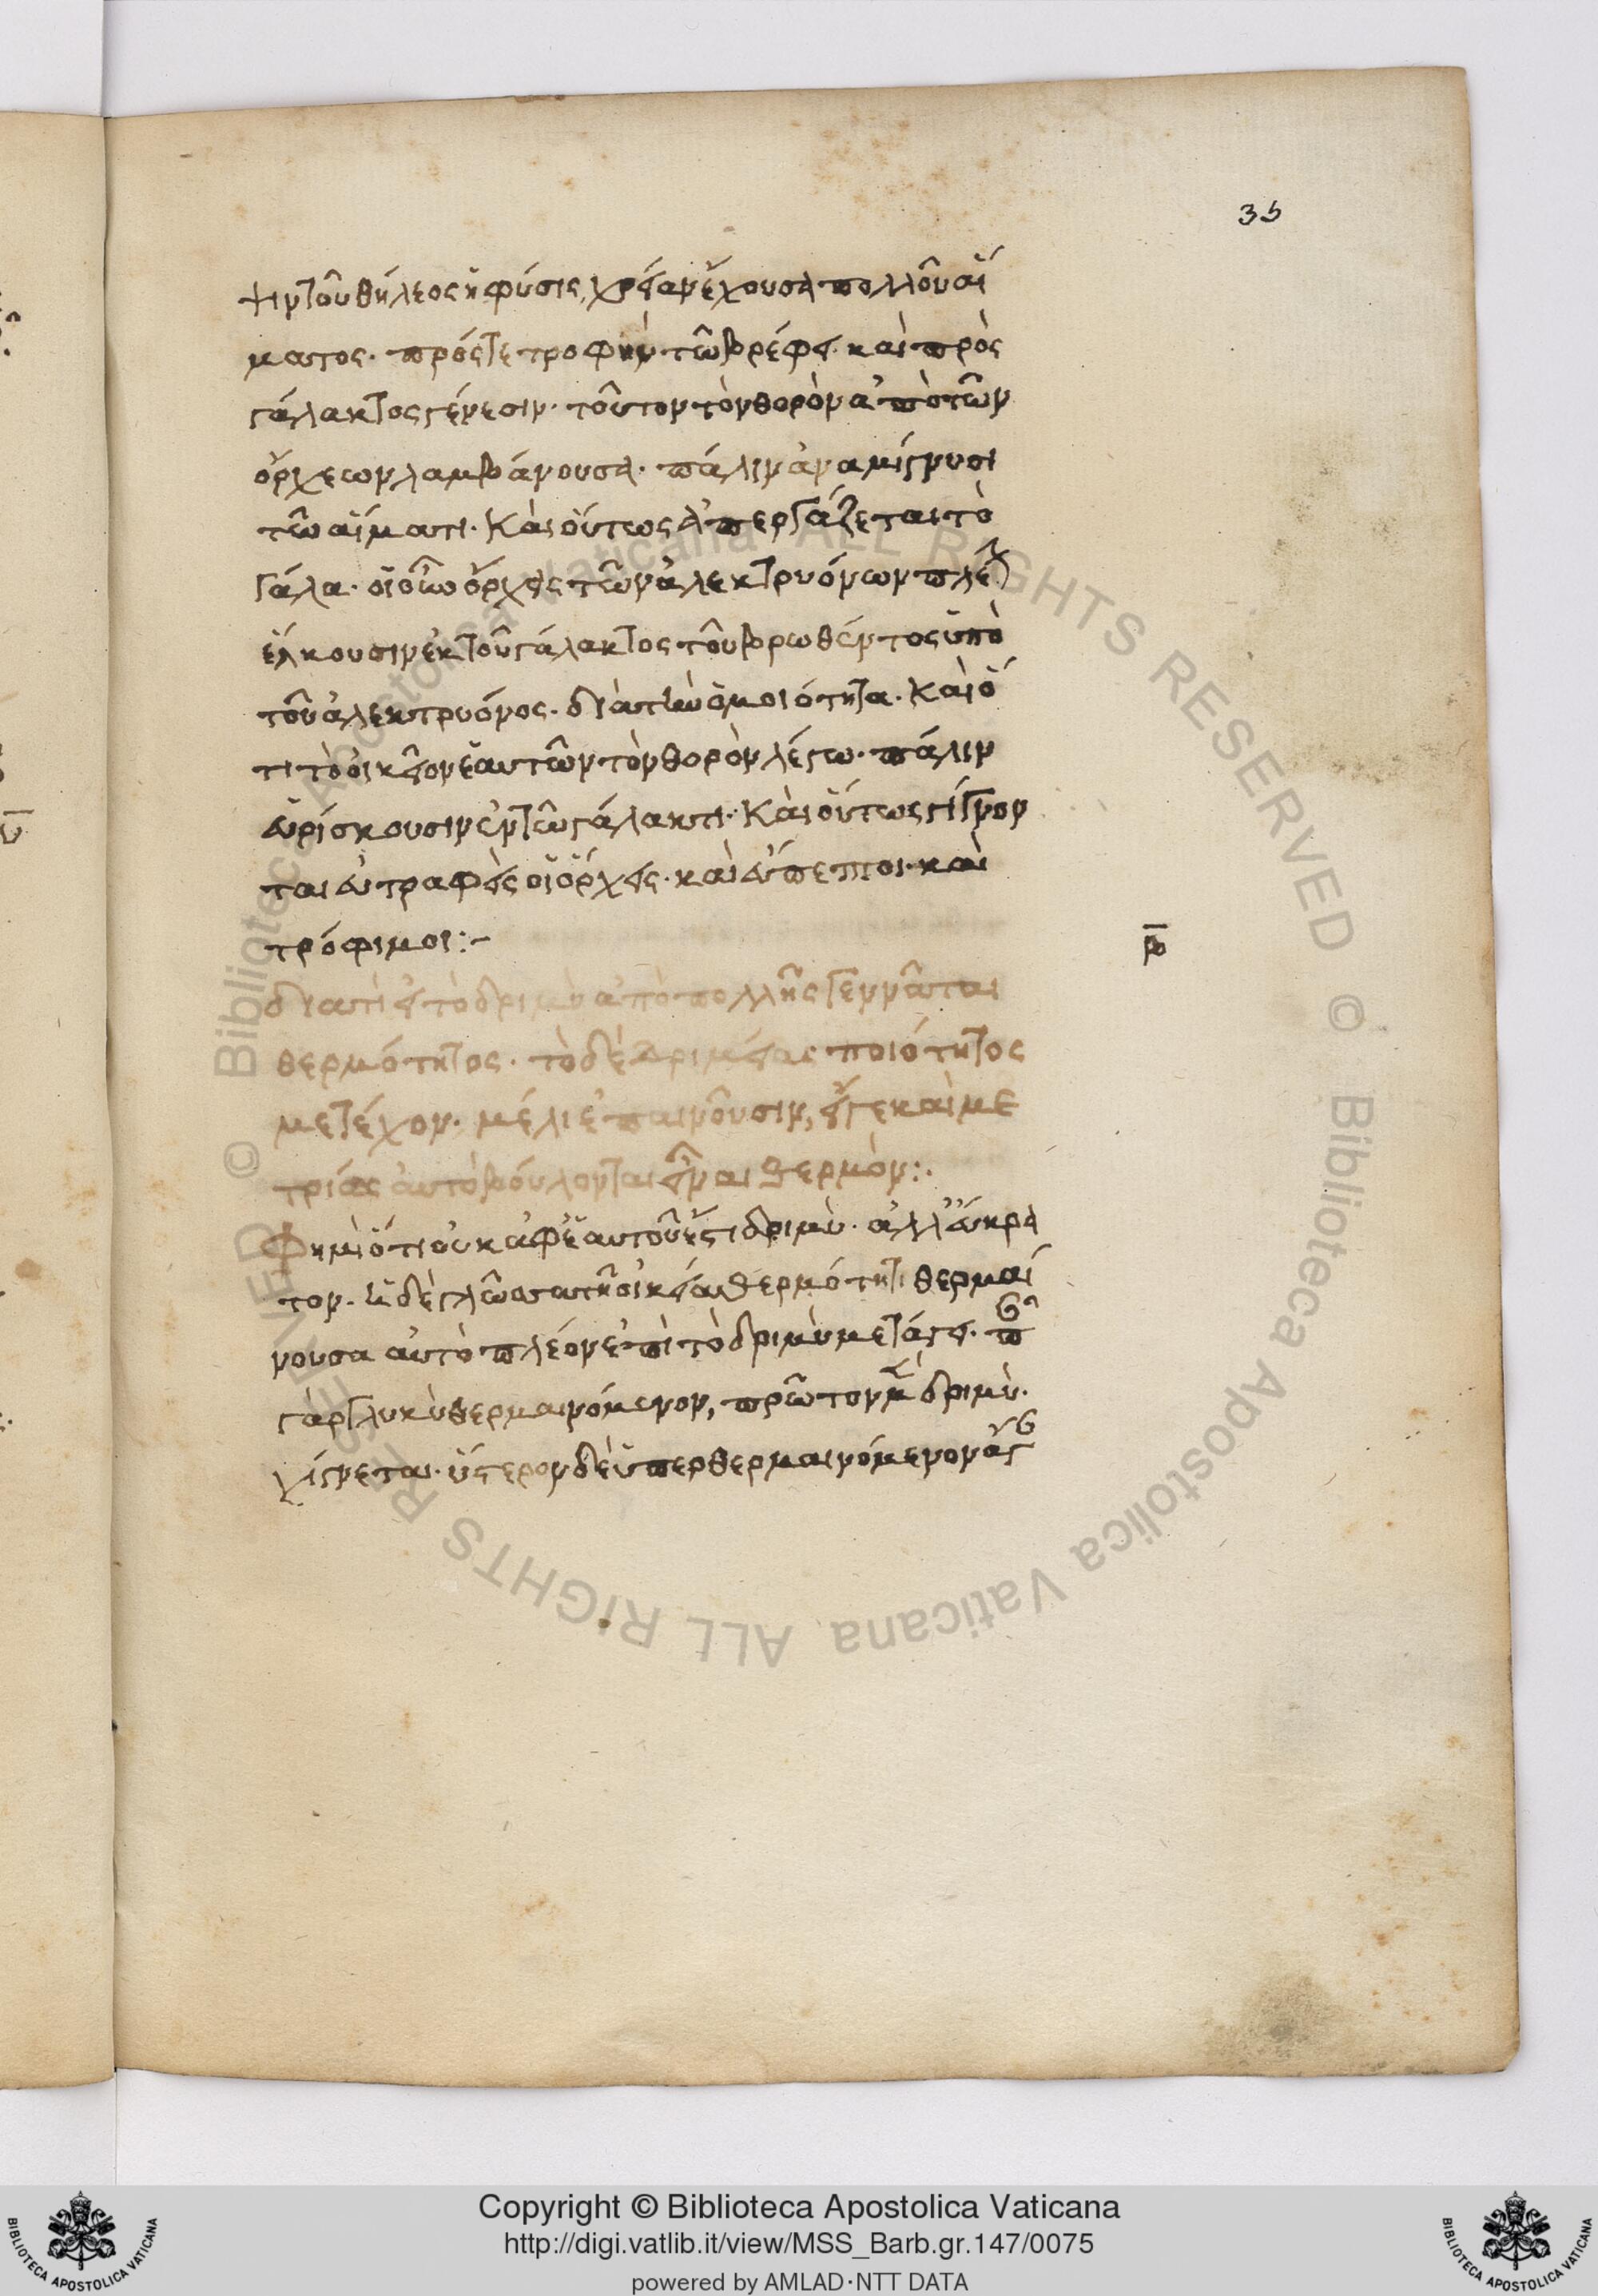 35
ἡ τοῦ θήλεος ἡ φύσις, χρείαν ἔχουσα πολλοῦ αἵ
ματος· πρός τε τροφὴν τῶ βρέφει· καὶ πρὸς
γάλακτος γένεσιν· τοῦτον τὸν θορὸν ἀπὸ τῶν
ὄρχεων λαμβάνουσα· πάλιν ἀναμίγνυσι
τῶ αἵματι· Καὶ οὕτως ἀπεργάζεται τὸ
γάλα· οἱ οὖν ὄρχεις τῶν ἀλεκτρυόνων
ἕλκουσιν ἐκ τοῦ γάλακτος τοῦ βρωθέντος ὑπὸ
τοῦ ἀλεκτρυόνος· διὰ τὴν ὁμοιότητα· Καὶ ὅ
τι τὸ οἰκεῖον ἑαυτῶν τὸν θορὸν λέγω· πάλιν
εὑρίσκουσιν ἐν τῶ γάλακτι· Καὶ οὕτως γίγνον
ται εὐτραφεῖς οἱ ὄρχεις· καὶ εὔπεπτοι· καὶ
τρόφιμοι:-
ρβ
διατί εἰ τὸ δριμὺ ἀπὸ πολλῆς γεννᾶται
θερμότητος· τὸ δὲ δριμείας ποιότητος
μετέχον· μέλι ἐπαινοῦσιν, εἴγε καὶ με
τρίας αὐτὸ βούλονται εἶναι θερμόν:·
Φημὶ ὅτι οὐκ ἀφ' ἑαυτοῦ ἔστι δριμὺ· ἀλλ' εὔκρα
τον· ἡ δὲ γλῶσσα τῆ οἰκεία θερμότητι θερμαί
νουσα αὐτὸ πλέον ἐπὶ τὸ δριμὺ μετάγει· π
γὰρ γλυκὺ θερμαινόμενον, πρῶτον μὲν δριμὺ·
γίγνεται· ὕστερον δὲ ὑπερθερμαινόμενον
Copyright © Biblioteca Apostolica Vaticana
http://digi.vatlib.it/view/MSS_Barb.gr.147/0075
powered by AMLAD·NTT DATA
© Biblioteca Apostolica Vaticana ALL RIGHTS RESERVED © Biblioteca Apostolica Vaticana ALL RIGHTS RESERVED
BIBLIOTECA APOSTOLICA VATICANA
BIBLIOTECA APOSTOLICA VATICANA